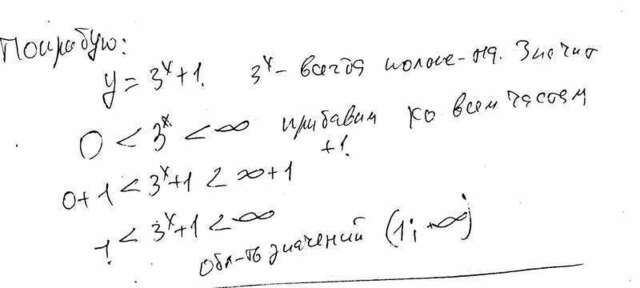 Попробую:
y = 3^x + 1. 3^x - всегда полож-на. Значит
0 < 3^x < ∞ прибавим ко всем частям
+1.
0+1 < 3^x+1 < ∞+1
1 < 3^x+1 < ∞
Обл-ть значений (1; +∞)